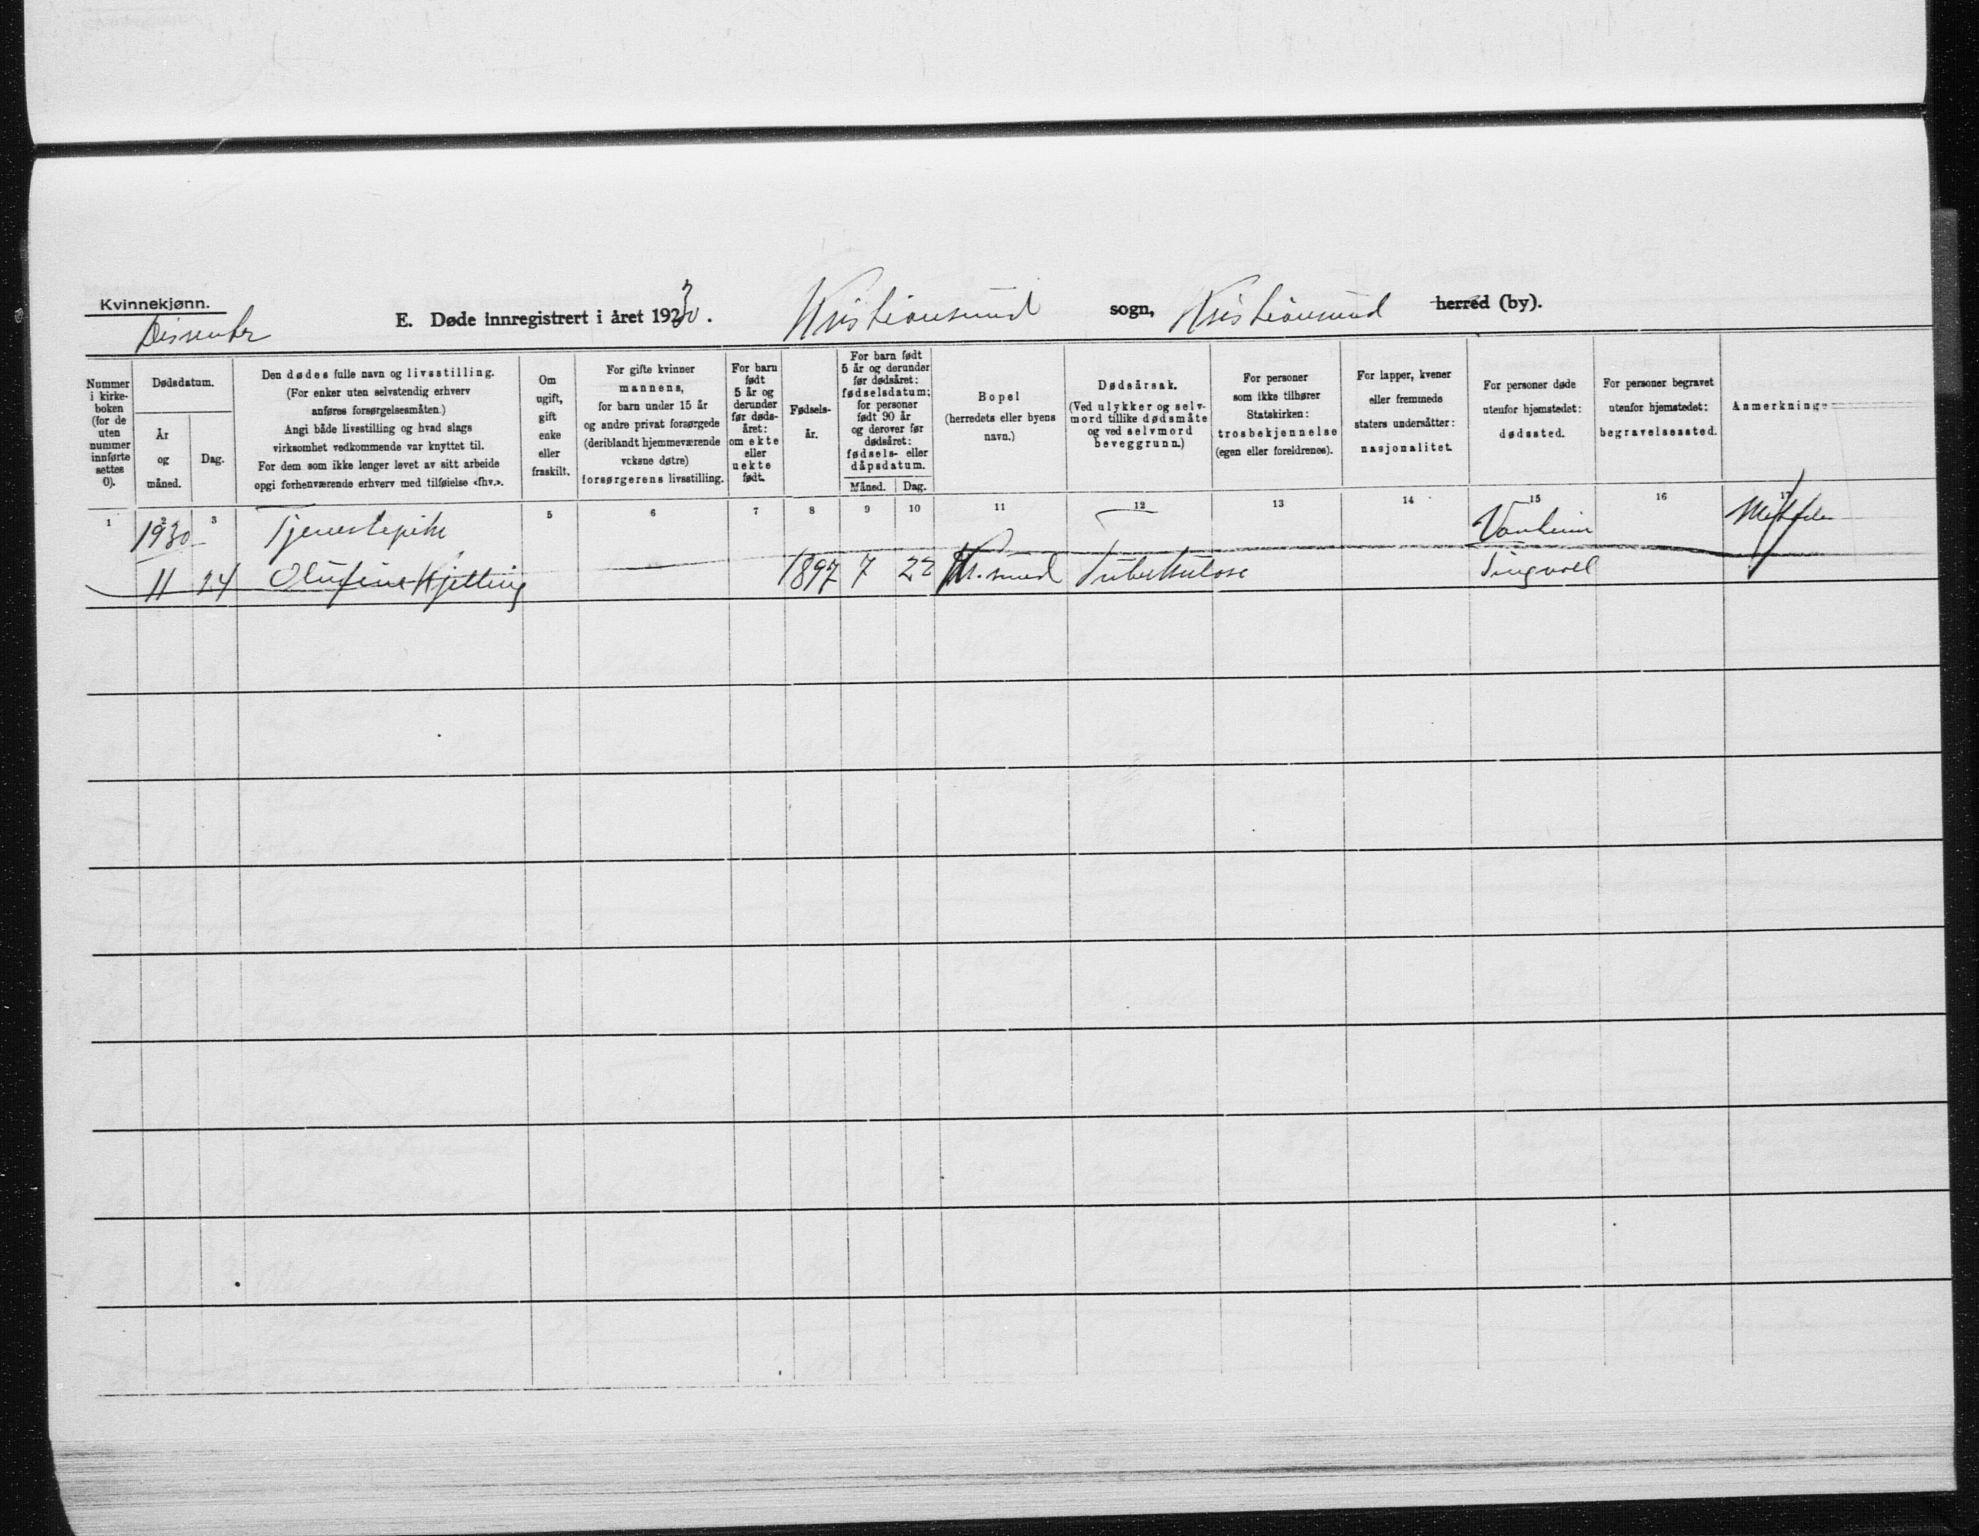 Kvinnekjønn.
Dissenter
E. Døde innregistrert i året 1930.
Kristiansund sogn, Kristiansund herred (by).
Nummer
i kirke-
boken
(for de
uten
nummer
innførte
settes
0).
Dødsdatum.
År
og
måned.
Dag.
Den dødes fulle navn og livsstilling.
(For enker uten selvstendig erhverv
anføres forsørgelsesmåten.)
Angi både livsstilling og hvad slags
virksomhet vedkommende var knyttet til.
For dem som ikke lenger levet av sitt arbeide
opgi forhenværende erhverv med tilføielse «fhv.».
Om
ugift,
gift
enke
eller
fraskilt.
For gifte kvinner
mannens,
for barn under 15 år
og andre privat forsørgede
(deriblandt hjemmeværende
vcksne døtre)
forsørgerens livsstilling.
For barn
født
5 år og
derunder
før døds-
året:
om ekte
eller
uekte
født.
Fødsels-
år.
For barn født
5 år og derunder
før dødsåret:
fødselsdatum;
for personer
født 90 år
og derover før
dødsåret:
fødsels- eller
dåpsdatum.
Måned. Dag.
Bopel
(herredets eller byens
navn.)
Dødsårsak.
(Ved ulykker og selv-
mord tillike dødsmåte
og ved selvmord
beveggrunn.)
For personer
som ikke tilhører
Statskirken:
trosbekjennelse
(egen eller foreldrenes).
For lapper, kvener
eller fremmede
staters undersåtter:
nasjonalitet.
For personer døde
utenfor hjemstedet:
dødssted.
For personer begravet
utenfor hjemstedet:
begravelsessted.
Anmerkninge
1 2 3 5 6 7 8 9 10 11 12 13 14 15 16 17
1930 Tjenestepike
11 24 Olufine Kjelling 1897 7 22 Kr.sund Tuberkulose Tingvoll